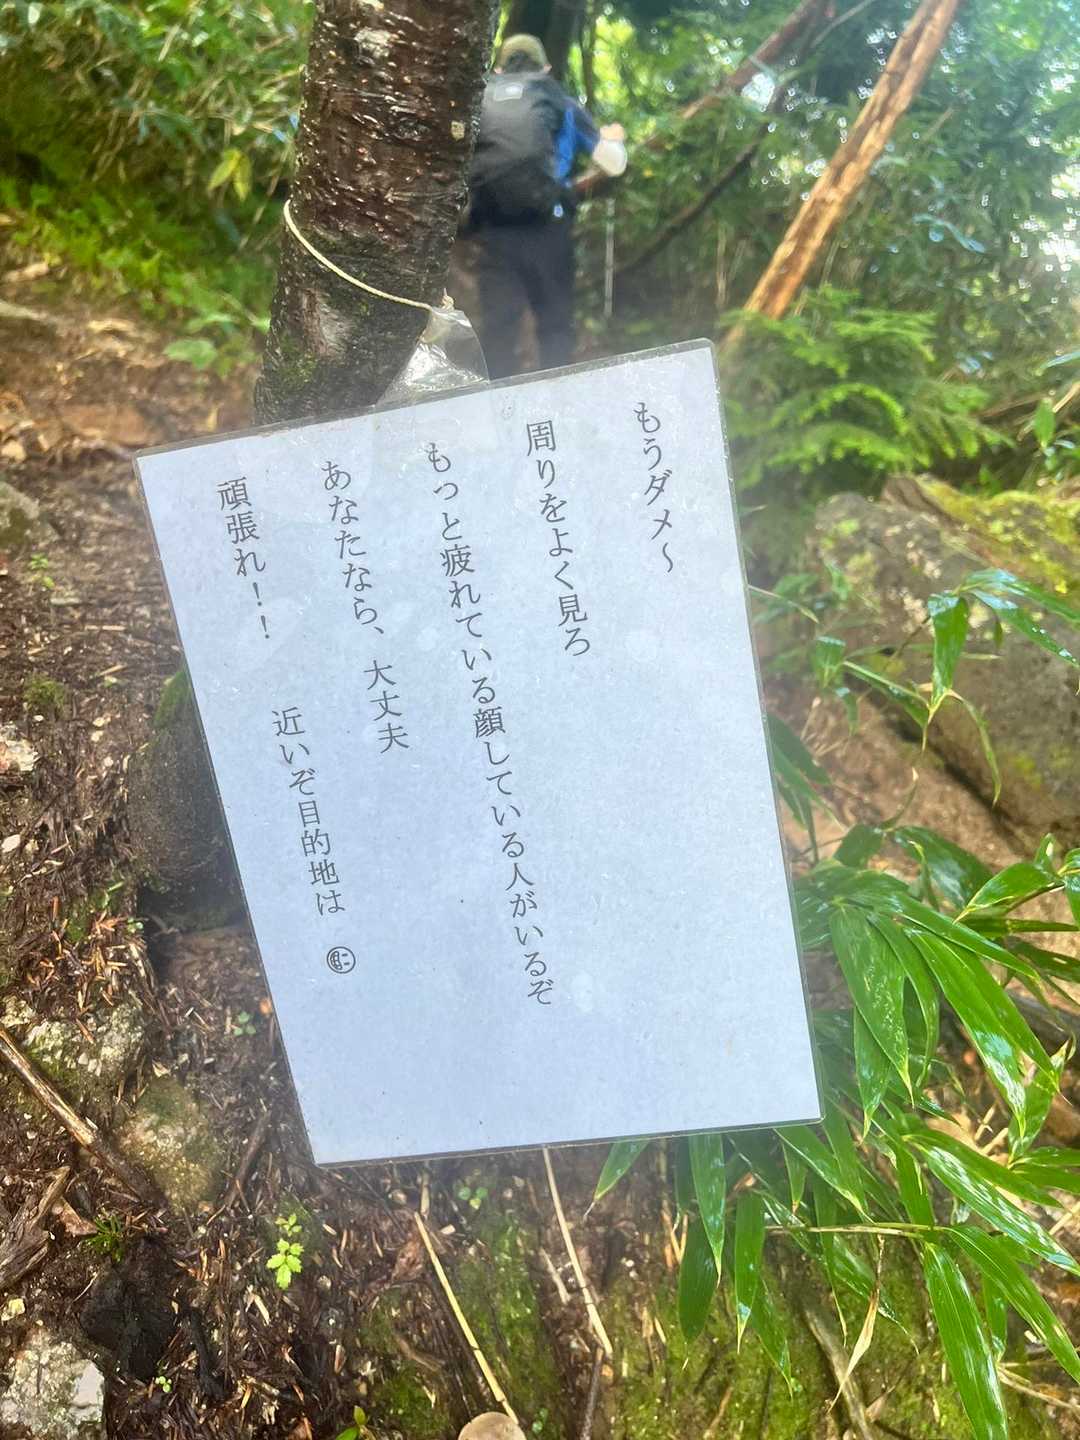 もうダメ~
周りをよく見ろ
もっと疲れている顔している人がいるぞ
あなたなら、大丈夫
頑張れ!! 近いぞ目的地は